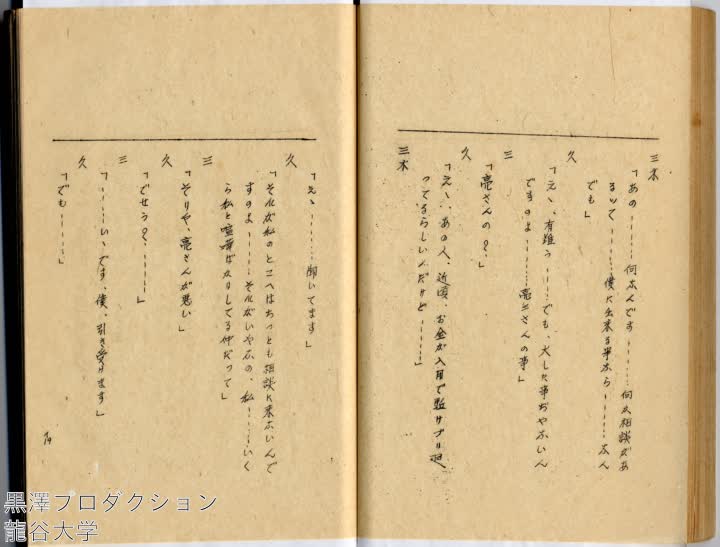 三木
「あの………何なんです………何な相談があ
るッて………僕に出来る事なら………なん
でも」
久
「えゝ、有難う………でも、大した事ぢやないん
ですのよ………亮三さんの事」
三
「亮さんの？」
久
「えゝ、あの人、近頃、お金が入用で駈けずり廻
つてるらしいんだけど………」
三木
「えゝ………聞いてます」
久
「それが私のとこへはちつとも相談に来ないんで
すのよ………それがいやなの、私………いく
ら私と喧嘩ばかりしてる仲だつて」
三
「そりや、亮さんが悪い」
久
「でせう？………」
三
「………いゝです、僕、引き受けます」
久
「でも………」
74
黒澤プロダクション
龍谷大学